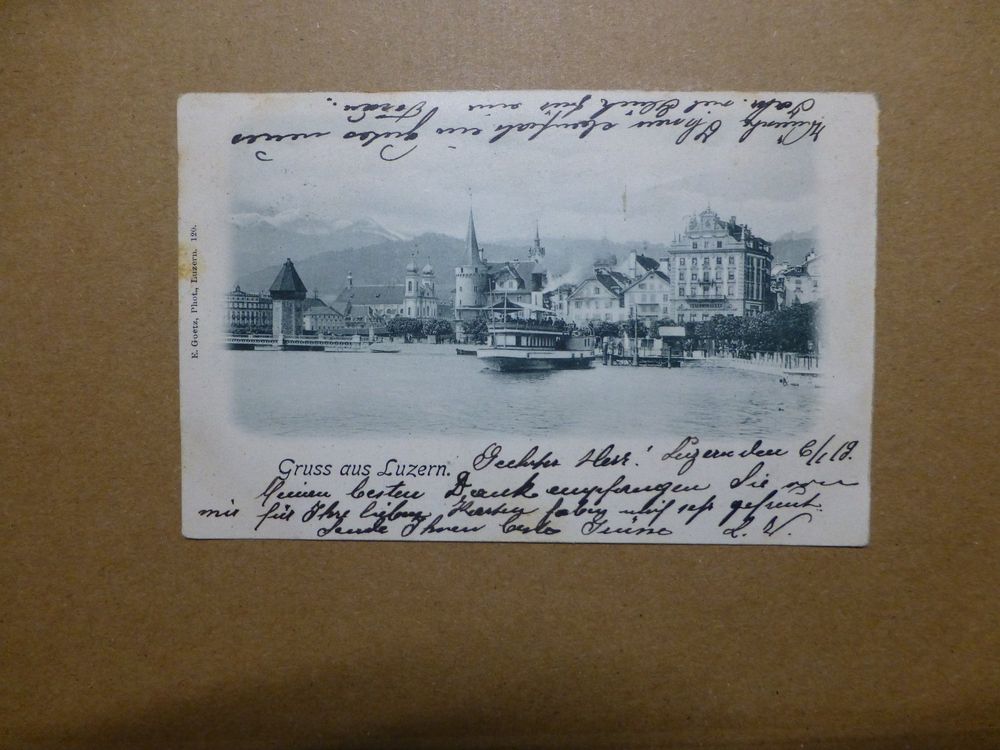 E. Goetz, Phot., Luzern. 120.
Gruss aus Luzern.
Geehrter Herr! Luzern den 6/1 19.
Meinen besten Dank empfangen Sie von
mir für Ihre lieben Karten habe mich sehr gefreut.
Sende Ihnen beste Grüsse L. W.
Wünsche Ihnen ebenfalls ein gutes neues
Jahr. viel Glück